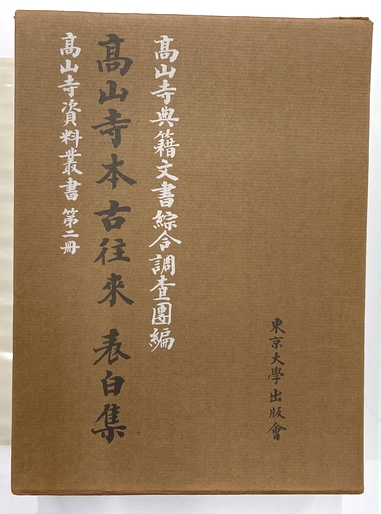 高山寺典籍文書綜合調査團編
高山寺本古往來 表白集
高山寺資料叢書 第二冊
東京大學出版會